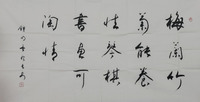 梅蘭竹
菊能養
性琴棋
書画可
陶情